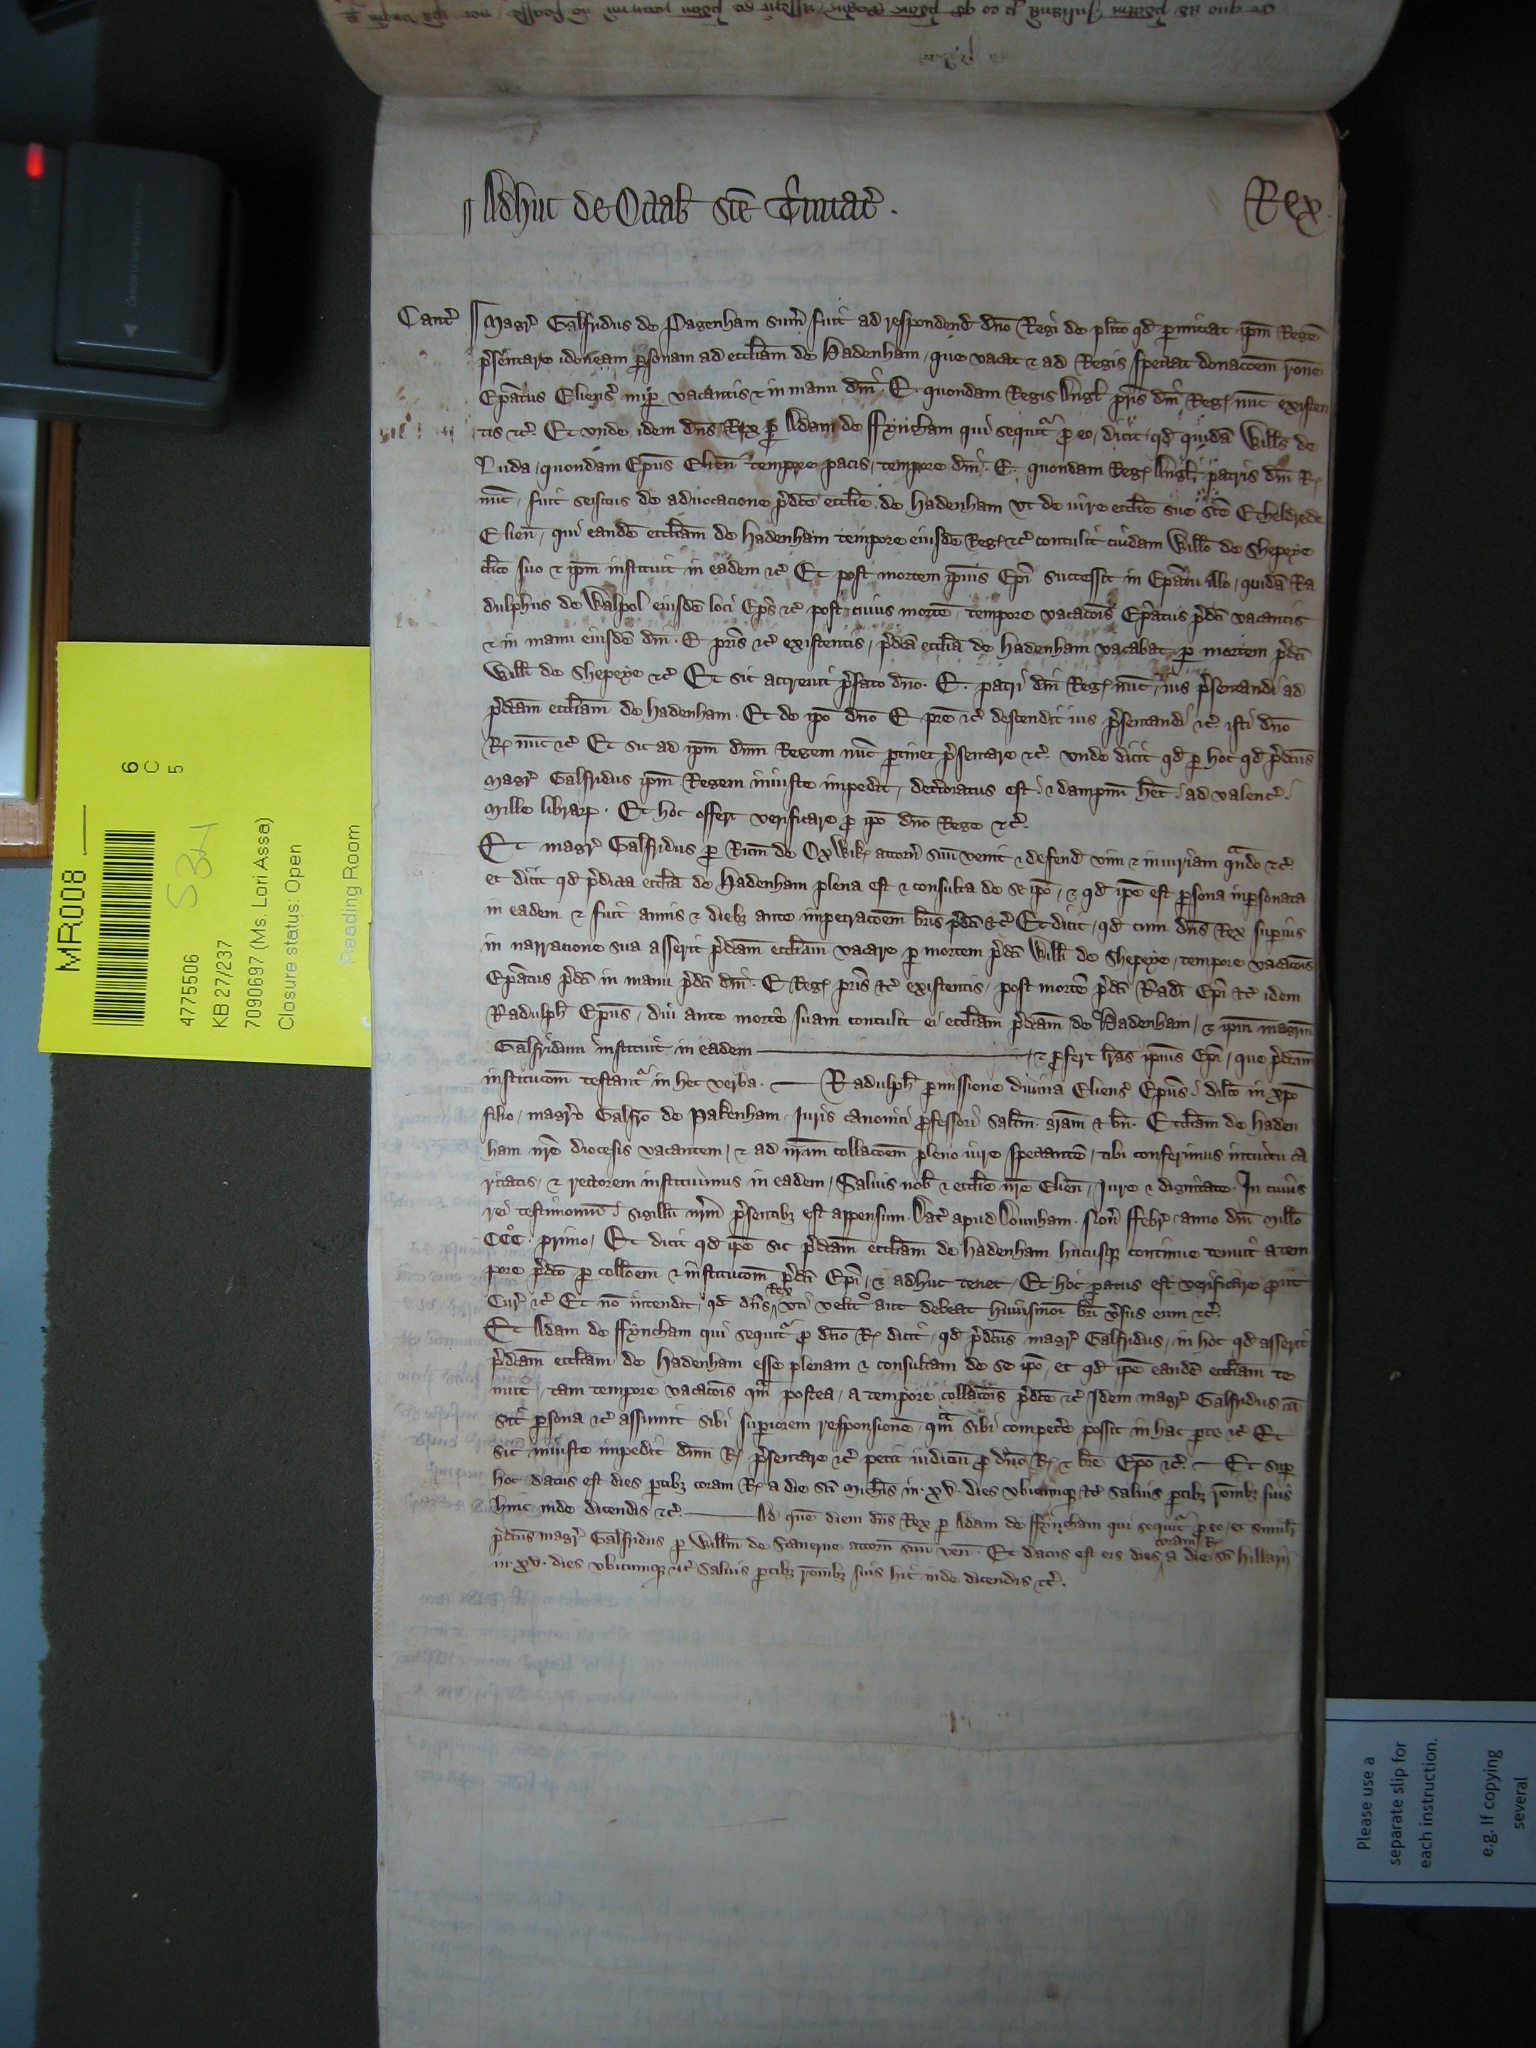 Adhuc de Octab̄ sc̄e T̓nitat̓. Rex.
Cant̓ Magr̓ Galfridus de Pagenham sum̄ fuit ad respondend̓ dn̄o Regi de plīto qd̓ p̱mittat ip̄m Regē
p̓sentare idoneam p̱sonam ad eccl̄iam de Hadenham, que vacat ⁊ ad Regis spectat donac̄oem rōne
Ep̄atus Eliens̓ nup̱ vacantis ⁊ in manu dn̄i . E . quondam Regis Angl̓ pr̄is dn̄i Reg̓ nūc existen
tis ⁊c̓. Et vnde idem dn̄s Rex p̱ Adam de ffyncham qui sequit̓ p̱ eo, dicit, qd̓ quidā Will̄s de
Luda, quondam Ep̄us Elien̄ tempore pacis, tempore dn̄i . E . quondam Reg̓ Angl̓ patris dn̄i R̓
nūc, fuit seisitus de aduocacione p̓dc̄e eccl̄ie de Hadenham vt de iure eccl̄ie sue sc̄e Etheldrede
Elien̄, qui eandē eccl̄iam de Hadenham tempore eiusdē Reg̓ ⁊c̓ contulit cuidam Will̄o de Shepeye
cl̄ico suo ⁊ ip̄m instituit in eadem ⁊c̓ Et post mortem ip̄ius Ep̄i successit in Ep̄atu illo, quidā Ra
dulphus de Walpol eiusdē loci Ep̄s ⁊c̓ post cuius mortē, tempore vacac̄ois Ep̄atus p̓dc̄i vacantis
⁊ in manu eiusdē dn̄i . E pr̄is ⁊c̓ existentis, p̓dc̄a eccl̄ia de Hadenham vacabat p̱ mortem p̓dc̄i
Will̄i de Shepeye ⁊c̓ Et sic accreuit p̓fato dn̄o . E . patri dn̄i Reg̓ nūc, ius p̓sentandi ad
p̓dc̄am eccl̄iam de Hadenham . Et de ip̄o dn̄o E pr̄e ⁊c̓ descendit ius p̓sentandi ⁊c̓ isti dn̄o
R̓ nūc ⁊c̓ Et sic ad ip̄m dn̄m Regem nūc p̱tinet p̓sentare ⁊c̓. vnde dicit qd̓ p̱ hoc qd̓ p̓dc̄us
Magr̓ Galfridus ip̄m Regem iniuste impedit, det̓ioratus est ⁊ dampnū h̄et ad valenc̓
Mille librar̓. Et hoc offert verificare p̱ ip̄o dn̄o Rege ⁊c̓.
Et magr̓ Galfridus p̱ Ric̄m de Oxwik̓ attorn̄ suū venit ⁊ defend̓ vim ⁊ iniuriam qn̄do ⁊c̓
et dicit qd̓ p̓dicta eccl̄ia de Hadenham plena est ⁊ consulta de se ip̄o, ⁊ qd̓ ip̄e est p̱sona inp̱sonata
in eadem ⁊ fuit annis ⁊ diebꝫ ante impetrac̄oem br̄is p̓dc̄i ⁊c̓ Et dicit, qd̓ cum dn̄s Rex sup̱ius
in narracione sua asserit p̓dc̄am eccl̄iam vacare p̱ mortem p̓dc̄i Will̄i de Shepeye, tempore vacac̄ois
Ep̄atus p̓dc̄i in manu p̓dc̄i dn̄i . E Reg̓ pr̄is ⁊c̓ existentis, post mortē p̓dc̄i Rad̄i Ep̄i ⁊c̓ idem
Radulph̓ Ep̄us, diu ante mortē suam contulit ei eccl̄iam p̓dc̄am de Hadenham, ⁊ ip̄m magr̄m
Galfridum instituit in eadem ——— ⁊ p̱fert lr̄as ip̄ius Ep̄i, que p̓dc̄am
instituc̄om testant̓ in hec verba. — Radulph̓ p̱missione diuina Eliens̓ Ep̄us dil̄co in xp̄o
filio, magr̄o Galfr̄o de Pakenham, Iuris canonici p̱fessori salt̄m . gr̄am ⁊ bn̄ . Eccl̄iam de Haden
ham nr̄e diocesis vacantem, ⁊ ad nr̄am collac̄oem pleno iure spectantē, tibi conferimus intuitu ca
ritatis, ⁊ rectorem instituimus in eadem, Saluis nob̓ ⁊ eccl̄ie nr̄e Elien̄, Iure ⁊ dignitate . In cuius
rei testimoniū sigillū nr̄m p̓sentibꝫ est appensum . Dat̓ apud Dounham . Non̄ ffebr̓ anno dn̄i Mill̄o
CCC̊ . primo, Et dicit qd̓ ip̄e sic p̓dc̄am eccl̄iam de Hadenham hucusqꝫ continue tenuit a tem
pore p̓dc̄o p̱ coll̄oem ⁊ instituc̄om p̓dc̄i Ep̄i, ⁊ adhuc tenet, Et hoc paratus est verificare prout
Cur̓ ⁊c̓ Et nō intendit, qd̓ dn̄s Rex vti velit aut debeat huiusmōi br̄i v̓sus eum ⁊c̓.
Et Adam de ffyncham qui sequit̓ p̱ dn̄o R̓ dicit, qd̓ p̓dc̄us magr̓ Galfridus, in hoc qd̓ asserit
p̓dc̄am eccl̄iam de Hadenham esse plenam ⁊ consultam de se ip̄o, et qd̓ ip̄e eandē eccl̄iam te
nuit, tam tempore vacac̄ois q̄m postea, a tempore collac̄ois p̓dc̄e ⁊c̓ Idem magr̓ Galfridus cū
sit p̱sona ⁊c̓ assumit sibi sup̱iorem responsionē, q̄m sibi compet̓e possit in hac p̱te ⁊c̓ Et
sic iniuste impedit dn̄m R̓ p̓sentare ⁊c̓ petit iudiciū p̱ dn̄o R̓ ⁊ br̄e Ep̄o ⁊c̓. — Et sup̱
hoc datus est dies p̱tibꝫ coram R̓ a die sc̄i Mich̄is in . xv . dies vbicumqꝫ ⁊c̓ Saluis p̱tibꝫ rōnibꝫ suis
hinc inde dicendis ⁊c̓. ——— Ad quē diem dn̄s Rex p̱ Adam de ffyncham qui sequit̓ p̱ eo, et simil̓r
p̓dc̄us magr̓ Galfridus p̱ Will̄m de Stanerne attorn̄ suū ven̄ . Et datus est eis dies coram R̓ a die sc̄i Hillarij
in . xv . dies vbicumqꝫ ⁊c̓ Saluis p̱tibꝫ rōnibꝫ suis hinc inde dicendis ⁊c̓.
MR008
6
C
5
S34
4775506
KB 27/237
7090697 (Ms. Lori Assa)
Closure status: Open
Reading Room
Please use a
separate slip for
each instruction.
e.g. If copying
several